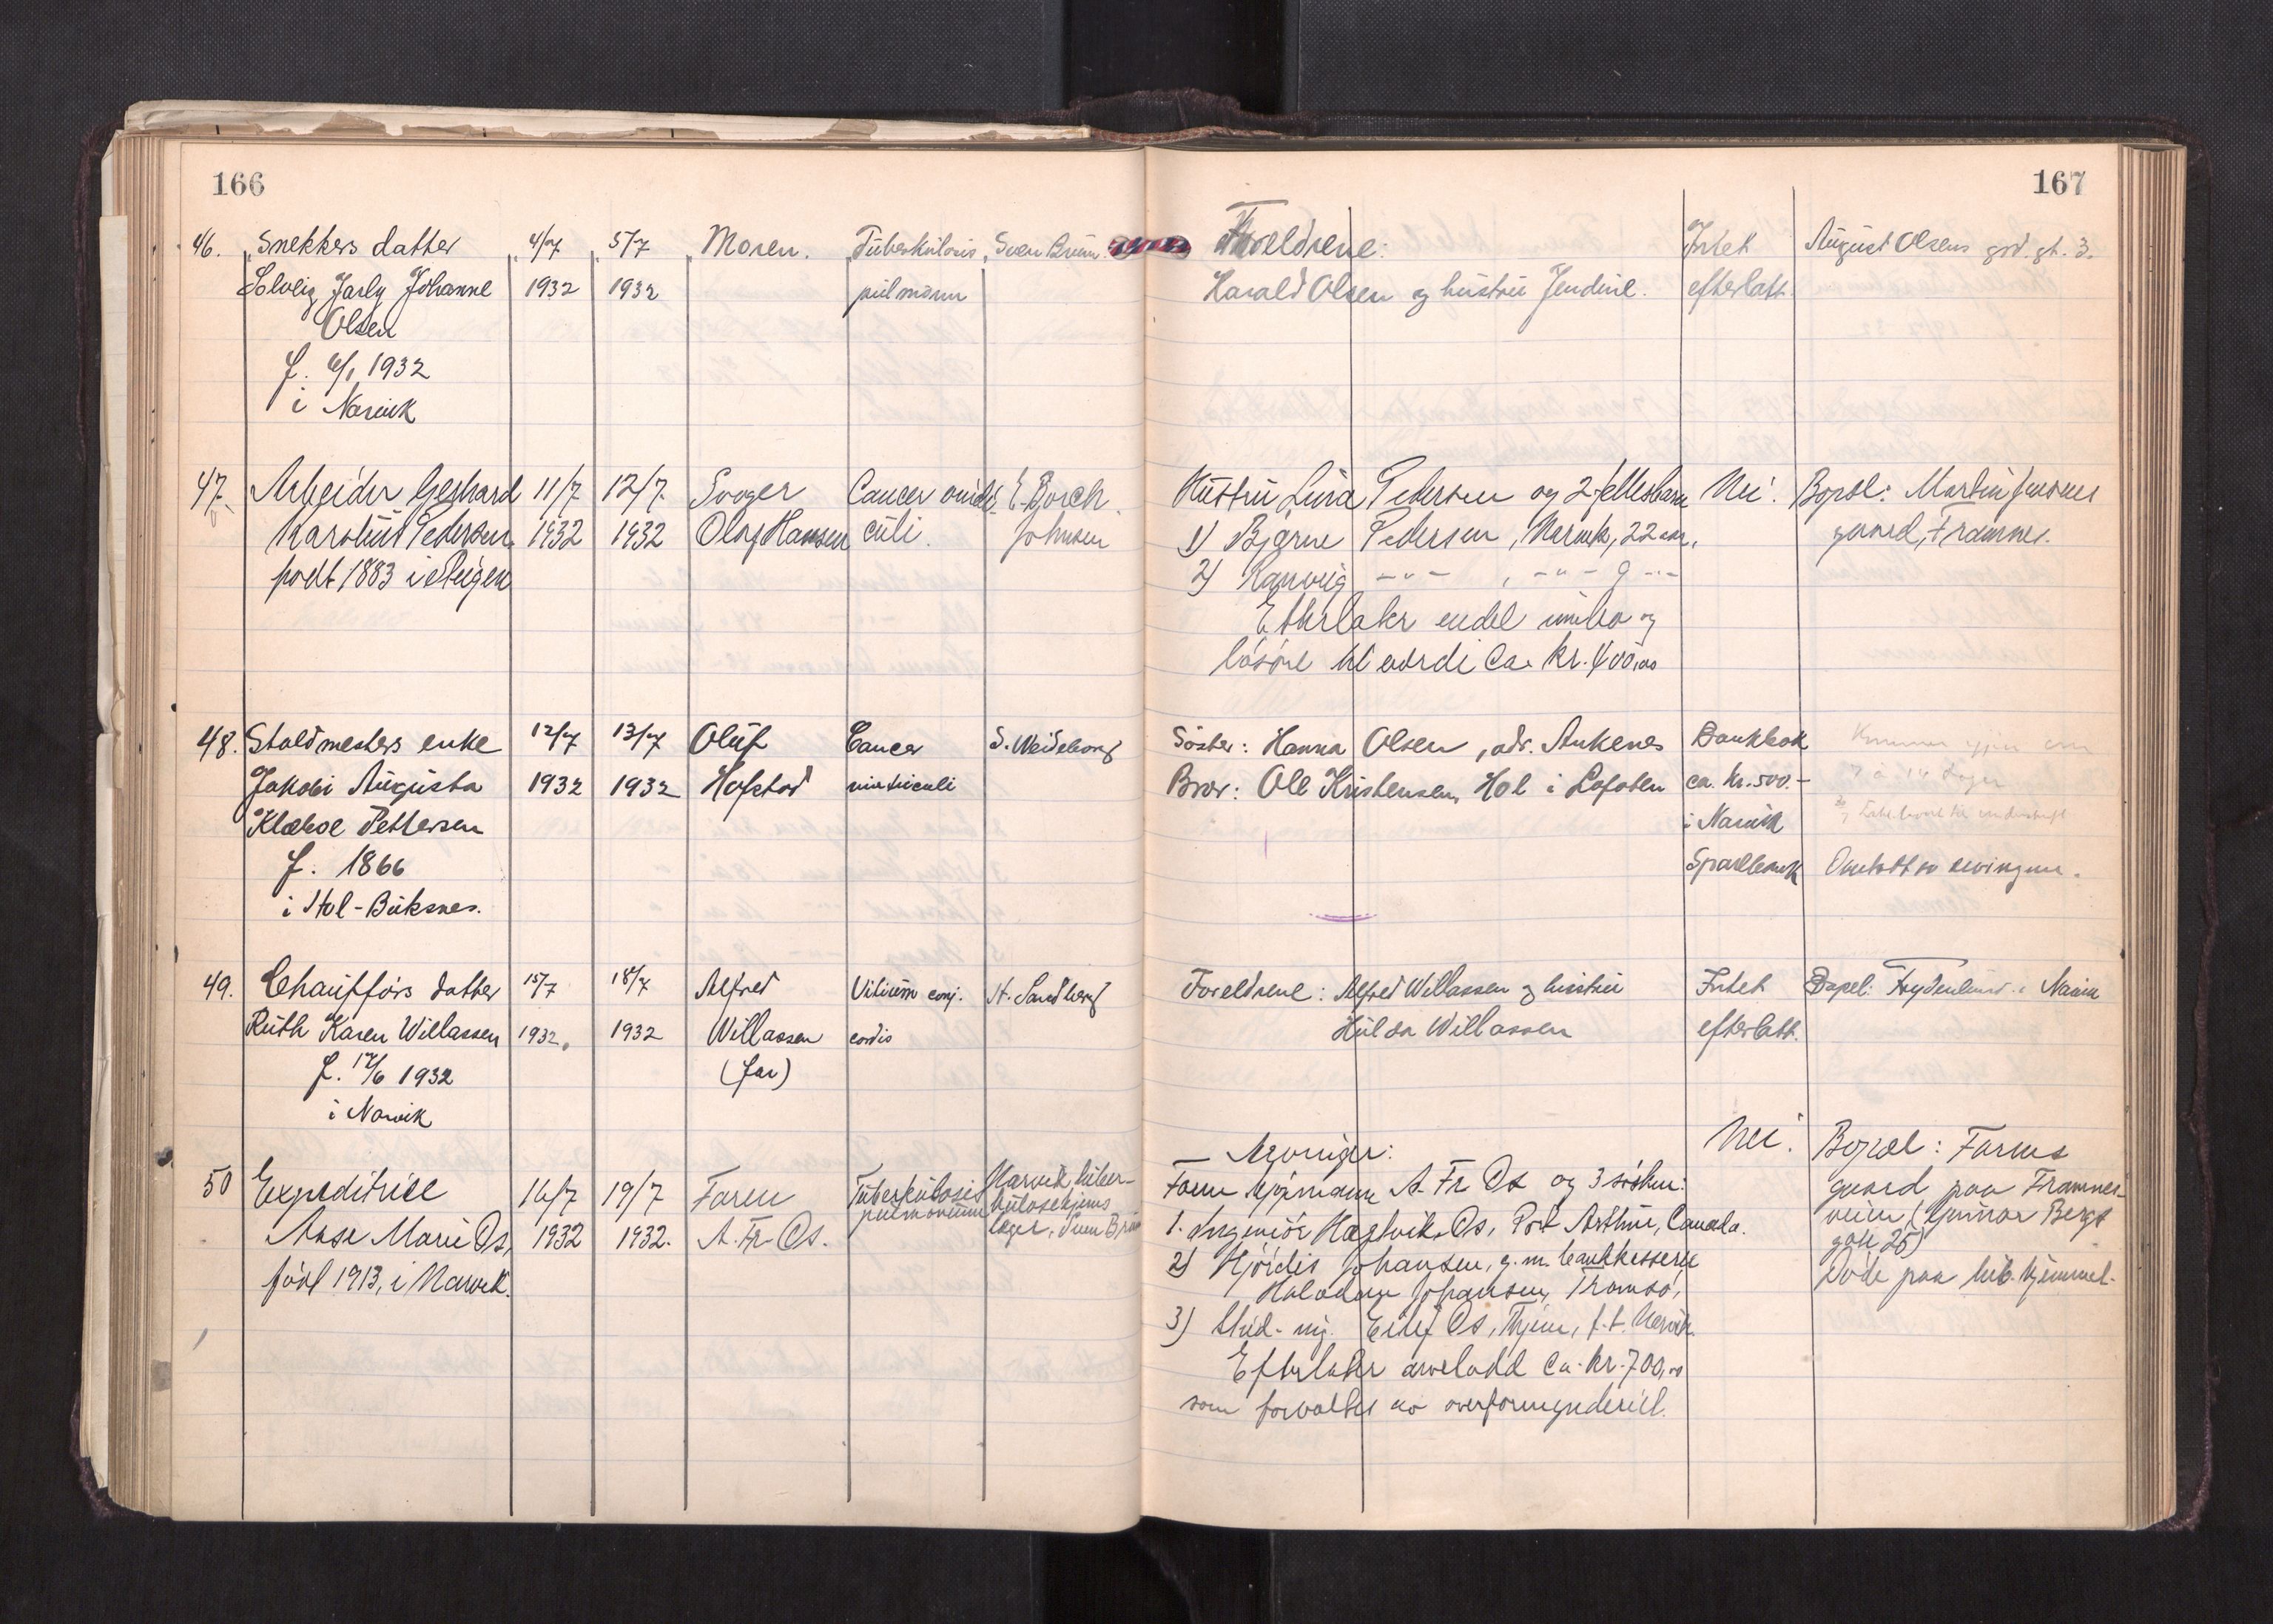 166
46. Snekkers datter 4/7 5/7 Moren. Tüberkülosis Sven Brün.
Solveig Jarly Johanne 1932 1932 pülmonum
Olsen
f. 6/1 1932
i Narvik
47. Arbeider Gerhard 11/7 12/7 Svoger Cancer E. Borch
Karolius Pedersen 1932 1932 Olaf Hansen culi. Johnsen
født 1883 i Steigen
48. Staldmesters enke 12/7 13/7 Olüf Cancer S. Weideborg
Jakobi Aügüsta 1932 1932 Hofstad ventriculi
Klæboe Pettersen
f. 1866
i Hol-Büksnes.
49. Chaufførs datter 15/7 18/7 Alfred Vitium conj. H. Sandberg
Rüth Karen Willassen 1932. 1932 Willassen cordis
f. 17/6 1932 (far)
i Narvik
50 Expeditrice 16/7 19/7 Faren Tüberkülosis Narvik tüber-
pulmonum külosehjems
Aase Marie Os, 1932 1932. A. Fr. Os. læge, Sven Brün
født 1913, i Narvik.
167
Foreldrene: Intet August Olsens grd. gt. 3.
Harald Olsen og hüstrü Jendine. efterlatt.
Hüstrü Lina Pedersen og 2 fellesbarn Nei. Bopæl: Martin Jensens
1) Bjarne Pedersen, Narvik, 22 aar. gaard, Framnes.
2) Ranveig -"- , -"- 9 -"-
Efterlater endel innbo og
løsøre til værdi ca. kr. 400,00
Søster: Hanna Olsen, adr. Ankenes Bankbok
Bror: Ole Kristensen, Hol i Lofoten ca. kr. 500.-
i Narvik
Sparebank
Foreldrene: Alfred Willassen og hüstrü Intet Bopel: Frydenlund i Narvik
Hülda Willassen efterlatt.
Arvinger: Nei. Bopæl: Farens
Faren kjøpmann A. Fr Os og 3 søsken: gaard paa Framnes-
1. Ingeniør Os, Port Arthür, Canada. veien (Günnar Bergs
gate 25)
2) Hjørdis Johansen, g.m. bankkasserer Døde paa tüb. hjemmet.
Halvdan Johansen, Tromsø,
3) Stüd. Os, Thjem, f.t. Narvik.
Efterlater arvelodd ca. kr. 700,00
som forvaltes av overformynderiet.